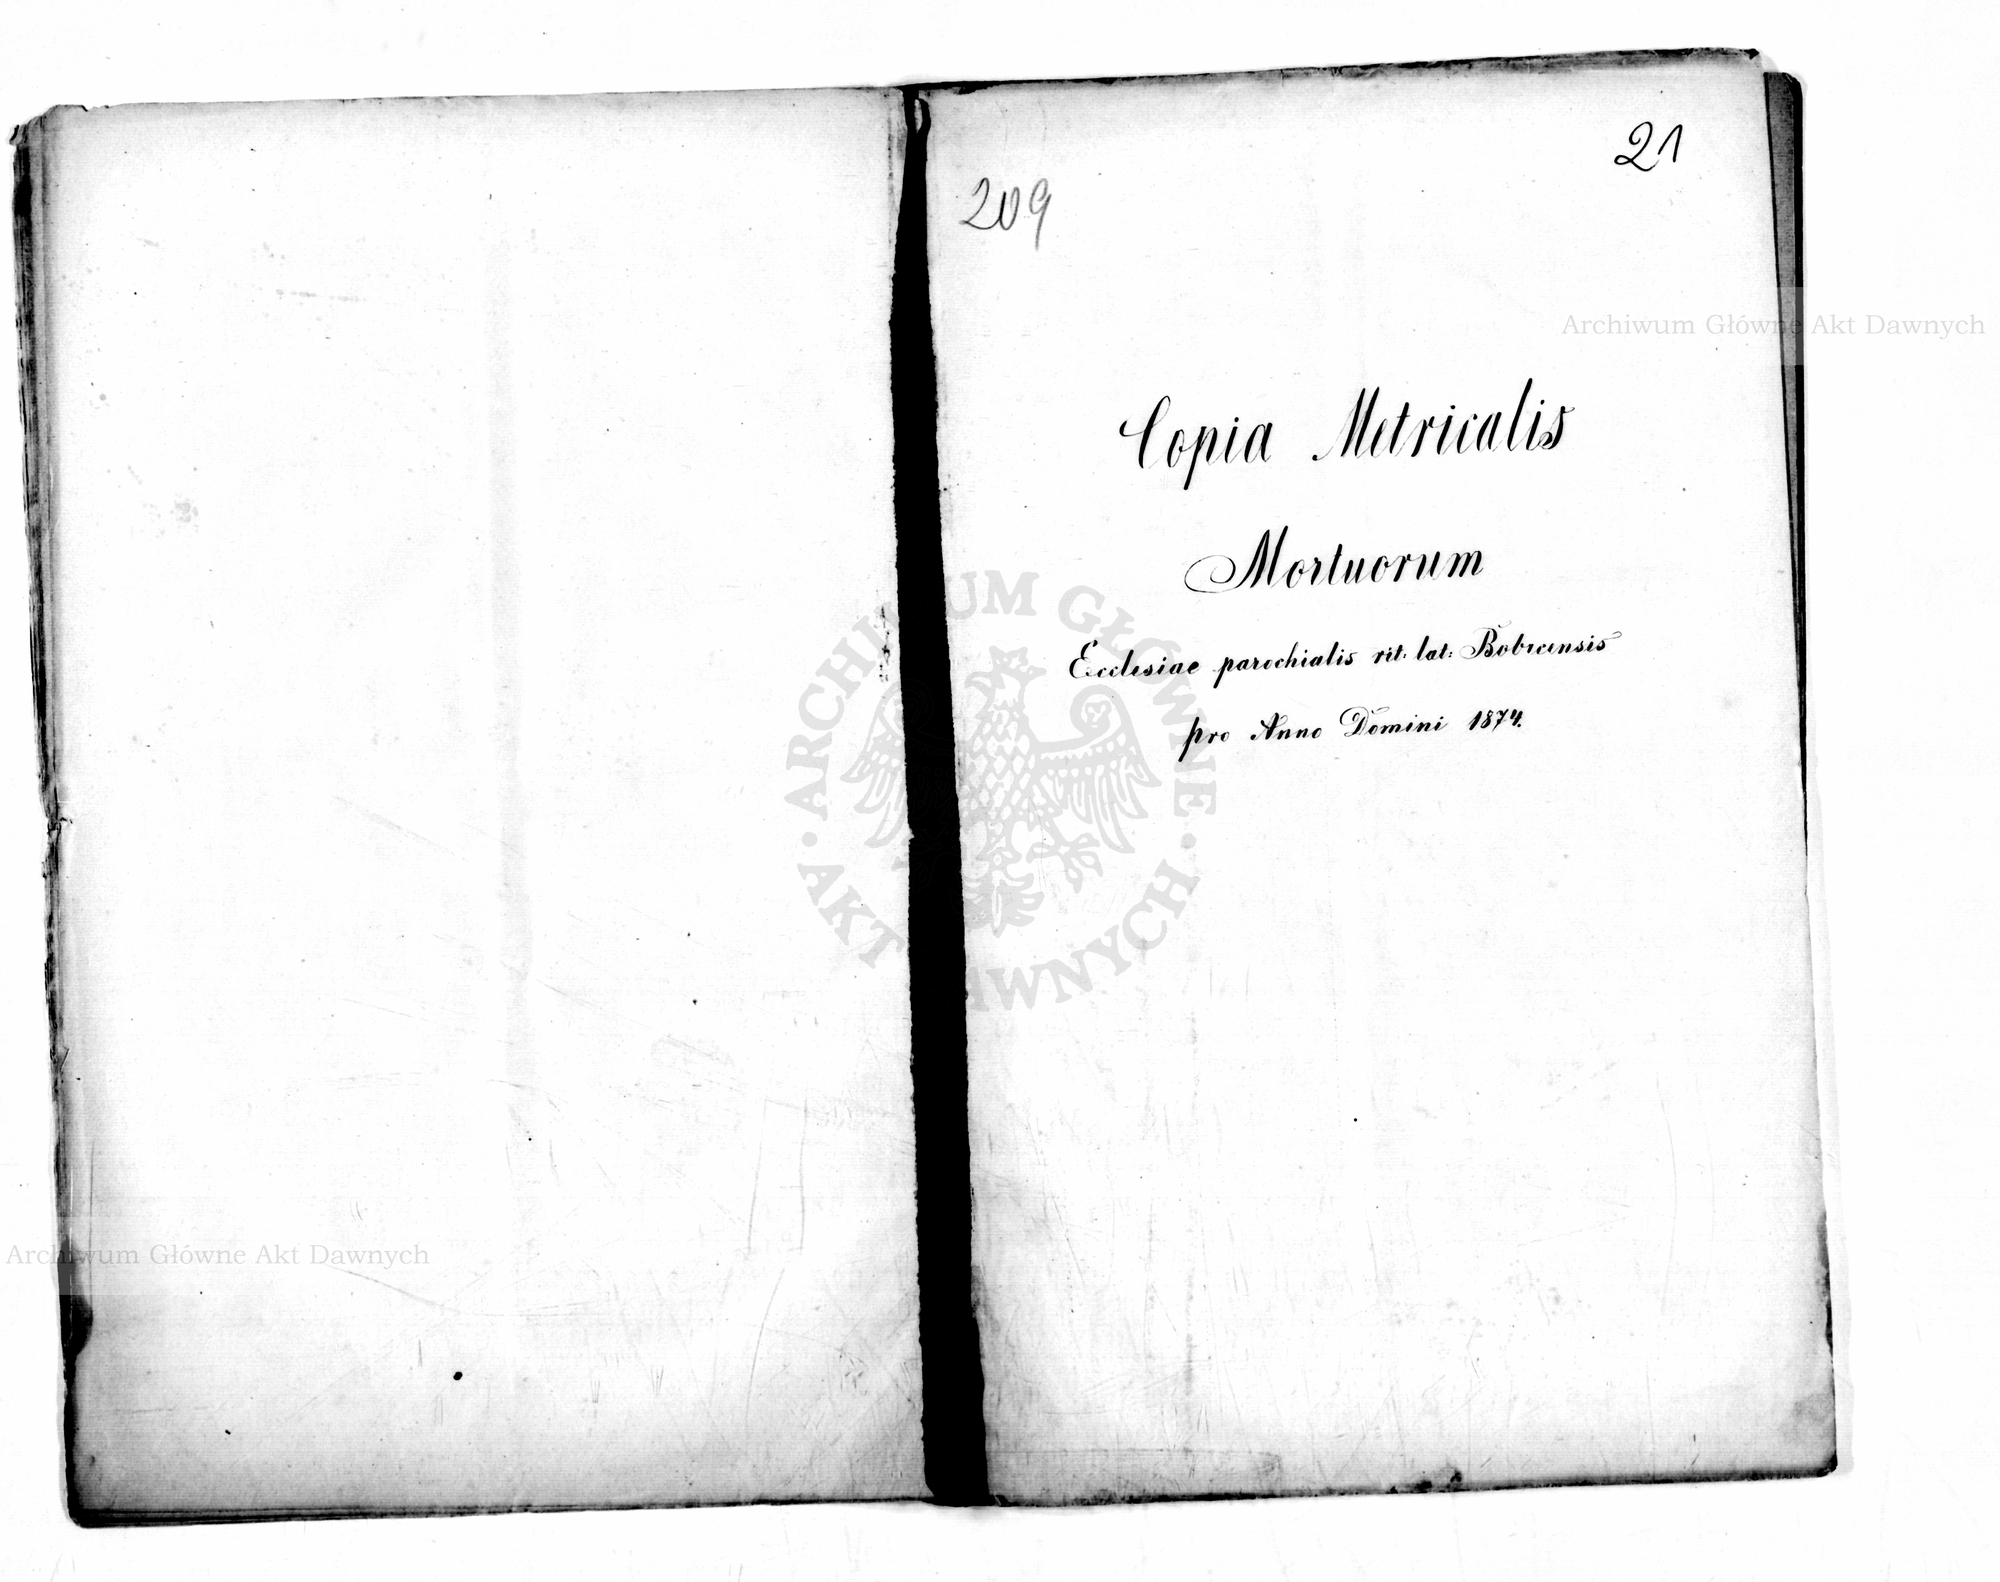 21
209
Copia Metricalis
Mortuorum
Ecclesiae parochialis rit. lat: Bobrcensis
pro Anno Domini 1874.
Archiwum Główne Akt Dawnych
ARCHIWUM GŁÓWNE
AKT DAWNYCH
Archiwum Główne Akt Dawnych